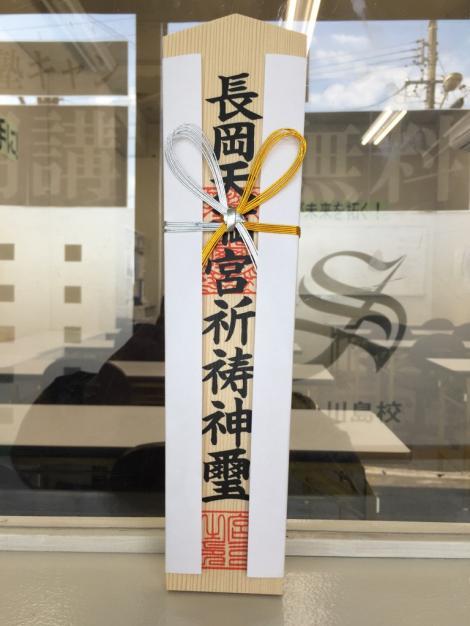 長岡天満宮祈祷神璽
講
無料
未来を拓く!
S
川島校